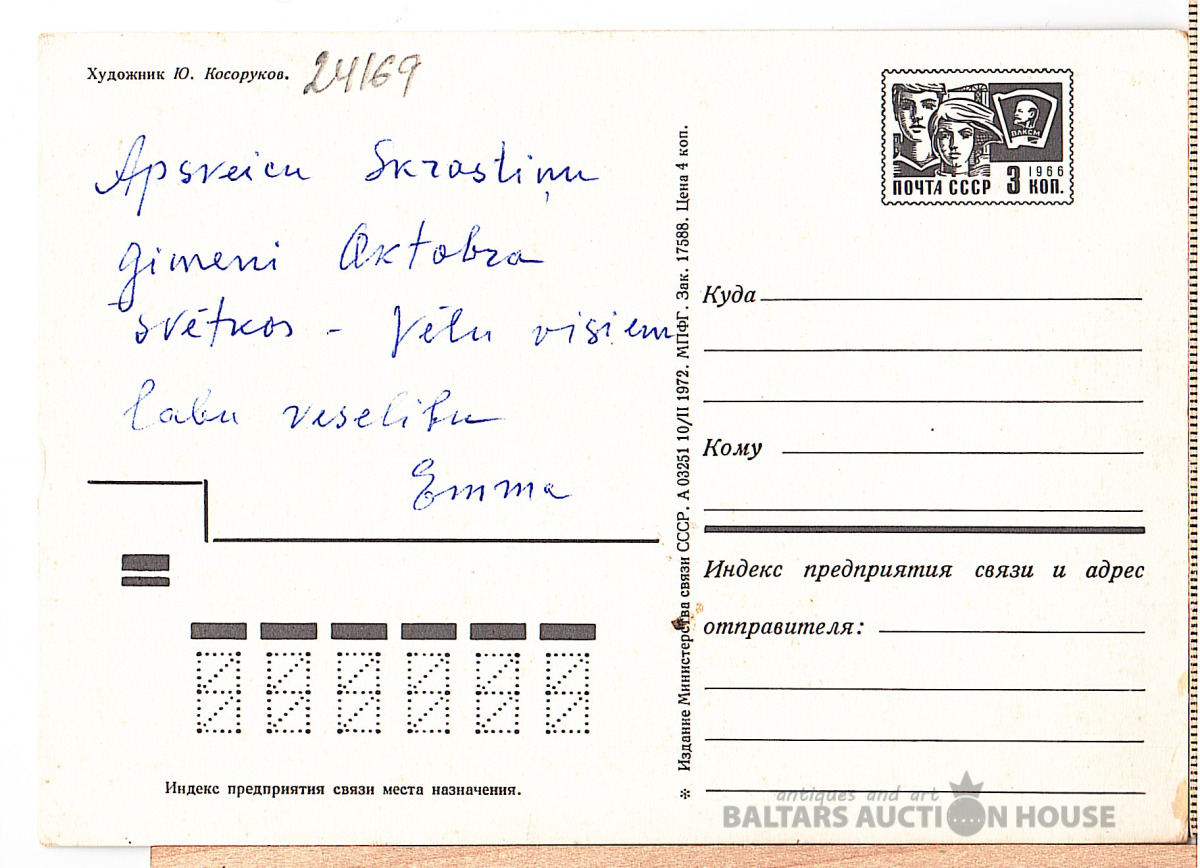 Художник Ю. Косоруков.
24169
Apsveicu Skrastiņu
ģimeni Oktobra
svētkos - Vēlu visiem
labu veselību
Emma
Индекс предприятия связи места назначения.
* Издание Министерства связи СССР. А 03251 10/II 1972. МПФГ. Зак. 17588. Цена 4 коп.
ВЛКСМ
1966
ПОЧТА СССР 3 КОП.
Куда
Кому
Индекс предприятия связи и адрес
отправителя:
antiques and art
BALTARS AUCTION HOUSE